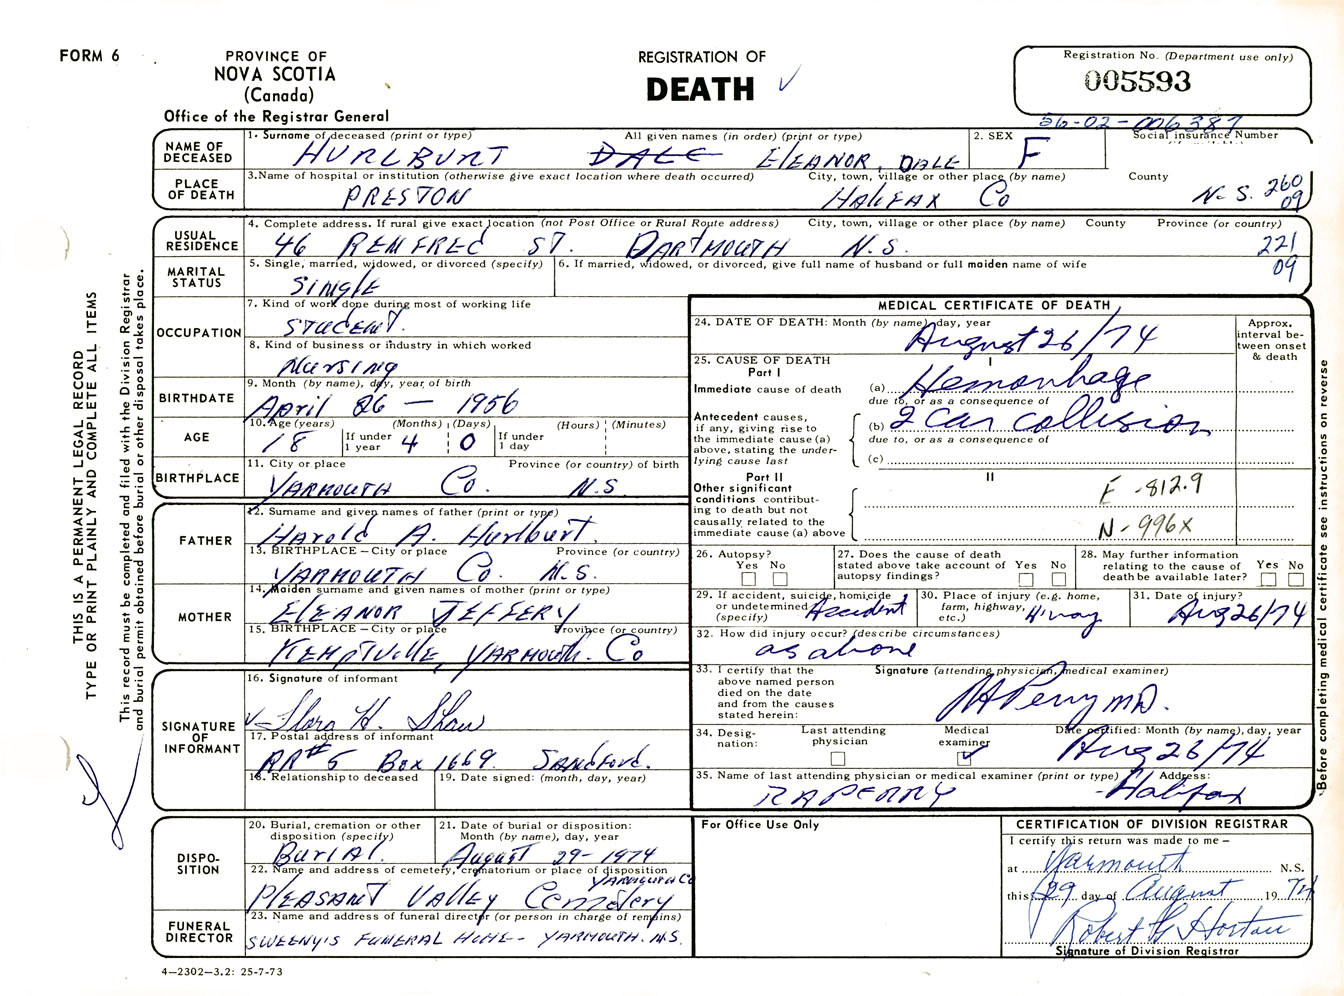 FORM 6
PROVINCE OF
NOVA SCOTIA
(Canada)
Office of the Registrar General
REGISTRATION OF
DEATH
Registration No. (Department use only)
005593
56-02-006387
NAME OF DECEASED
1. Surname of deceased (print or type) All given names (in order) (print or type)
HURLBURT DALE ELEANOR, DALE
2. SEX
F
Social insurance Number
PLACE OF DEATH
3. Name of hospital or institution (otherwise give exact location where death occurred) City, town, village or other place (by name) County
PRESTON HALIFAX Co N.S. 260
09
USUAL RESIDENCE
4. Complete address. If rural give exact location (not Post Office or Rural Route address) City, town, village or other place (by name) County Province (or country)
46 RENFREC ST. DARTMOUTH N.S. 221
09
MARITAL STATUS
5. Single, married, widowed, or divorced (specify)
SINGLE
6. If married, widowed, or divorced, give full name of husband or full maiden name of wife
OCCUPATION
7. Kind of work done during most of working life
STUDENT.
8. Kind of business or industry in which worked
Nursing
BIRTHDATE
9. Month (by name), day, year of birth
April 26 — 1956
AGE
10. Age (years) (Months) (Days) (Hours) (Minutes)
18 If under 1 year 4 0 If under 1 day
BIRTHPLACE
11. City or place Province (or country) of birth
YARMOUTH Co. N.S.
FATHER
12. Surname and given names of father (print or type)
Harold A. Hurlburt.
13. BIRTHPLACE – City or place Province (or country)
YARMOUTH Co. N.S.
MOTHER
14. Maiden surname and given names of mother (print or type)
ELEANOR JEFFERY
15. BIRTHPLACE – City or place Province (or country)
KEMPTVILLE, YARMOUTH. Co
SIGNATURE OF INFORMANT
16. Signature of informant
Flora H. Shaw
17. Postal address of informant
RR#5 Box 1669. Sandford.
18. Relationship to deceased 19. Date signed: (month, day, year)
DISPO-
SITION
20. Burial, cremation or other disposition (specify)
Burial.
21. Date of burial or disposition: Month (by name), day, year
August 29-1974
22. Name and address of cemetery, crematorium or place of disposition
YARMOUTH Co
PLEASANT Valley Cemetery
FUNERAL DIRECTOR
23. Name and address of funeral director (or person in charge of remains)
SWEENY'S FUNERAL HOME - YARMOUTH. N.S.
4—2302—3.2: 25-7-73
MEDICAL CERTIFICATE OF DEATH
24. DATE OF DEATH: Month (by name), day, year
August 26/74
Approx. interval between onset & death
25. CAUSE OF DEATH
Part I
I
Immediate cause of death
(a) Hemorrhage
due to, or as a consequence of
Antecedent causes, if any, giving rise to the immediate cause (a) above, stating the underlying cause last
(b) 2 car collision
due to, or as a consequence of
(c)
Part II
II
Other significant conditions contributing to death but not causally related to the immediate cause (a) above
E-812.9
N-996X
26. Autopsy?
Yes No
27. Does the cause of death stated above take account of autopsy findings?
Yes No
28. May further information relating to the cause of death be available later?
Yes No
29. If accident, suicide, homicide or undetermined (specify)
Accident
30. Place of injury (e.g. home, farm, highway, etc.)
H'way
31. Date of injury?
Aug 26/74
32. How did injury occur? (describe circumstances)
as above
33. I certify that the above named person died on the date and from the causes stated herein:
Signature (attending physician, medical examiner)
RA Perry MD.
34. Designation:
Last attending physician
Medical examiner
Date certified: Month (by name), day, year
Aug 28/74
35. Name of last attending physician or medical examiner (print or type) Address:
RA PERRY Halifax
For Office Use Only
CERTIFICATION OF DIVISION REGISTRAR
I certify this return was made to me –
at Yarmouth N.S.
this 29 day of August 1974
Robert G Horton
Signature of Division Registrar
THIS IS A PERMANENT LEGAL RECORD
TYPE OR PRINT PLAINLY AND COMPLETE ALL ITEMS
This record must be completed and filed with the Division Registrar
and burial permit obtained before burial or other disposal takes place.
Before completing medical certificate see instructions on reverse